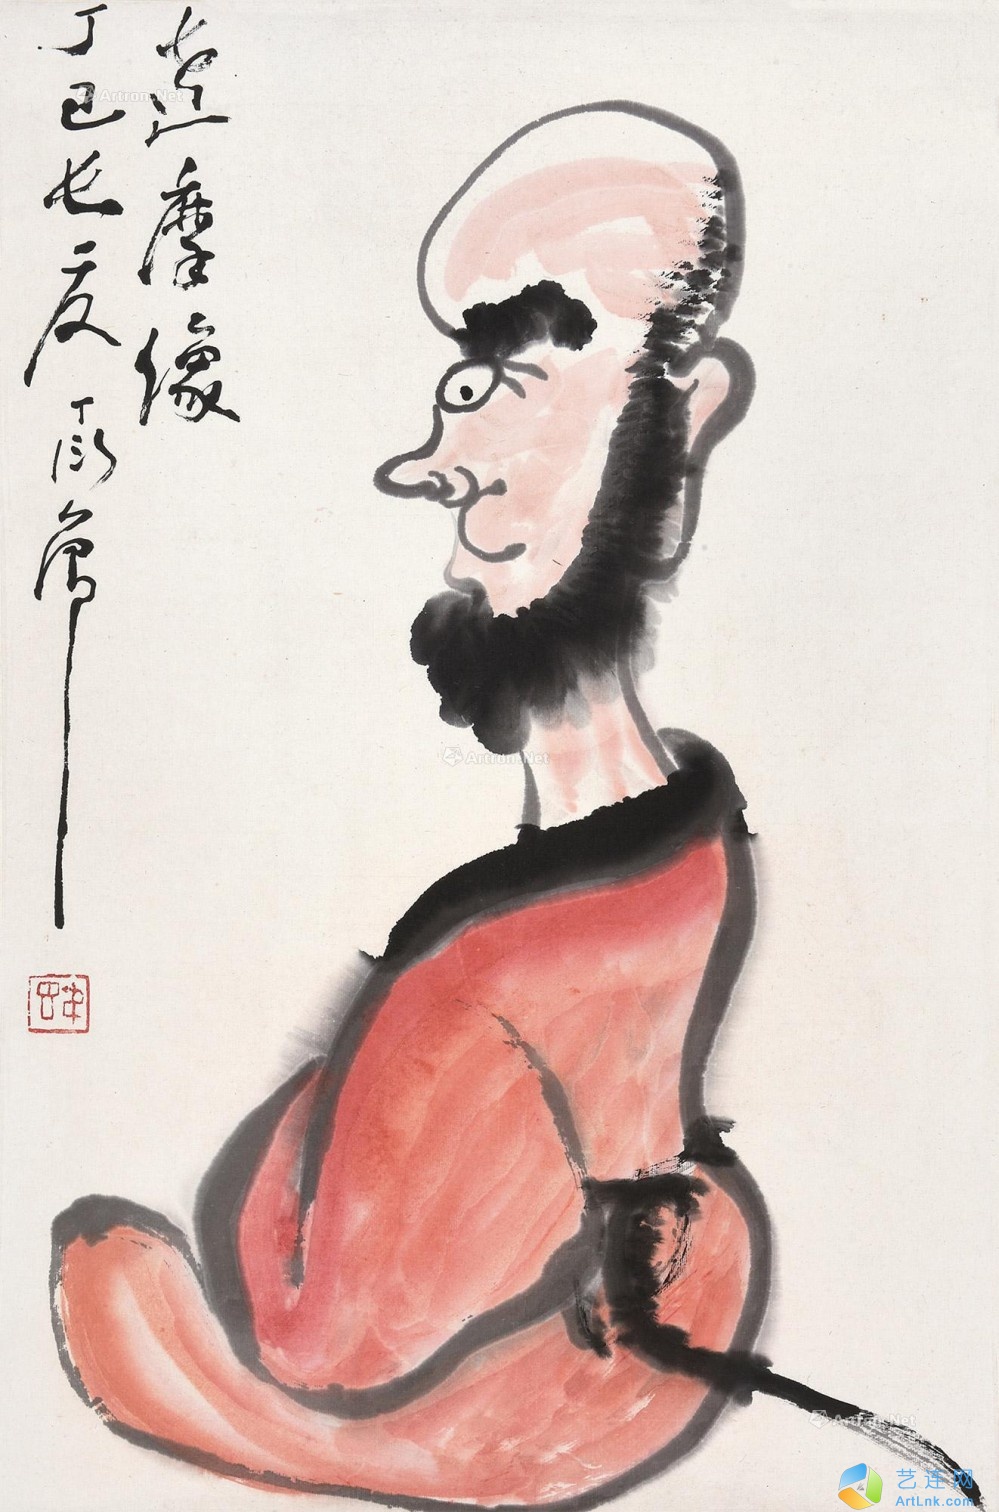 達摩像
丁巳長夏 丁衍庸
Artron.Net
Artron.Net
Artron.Net
艺连网
ArtLnk.com